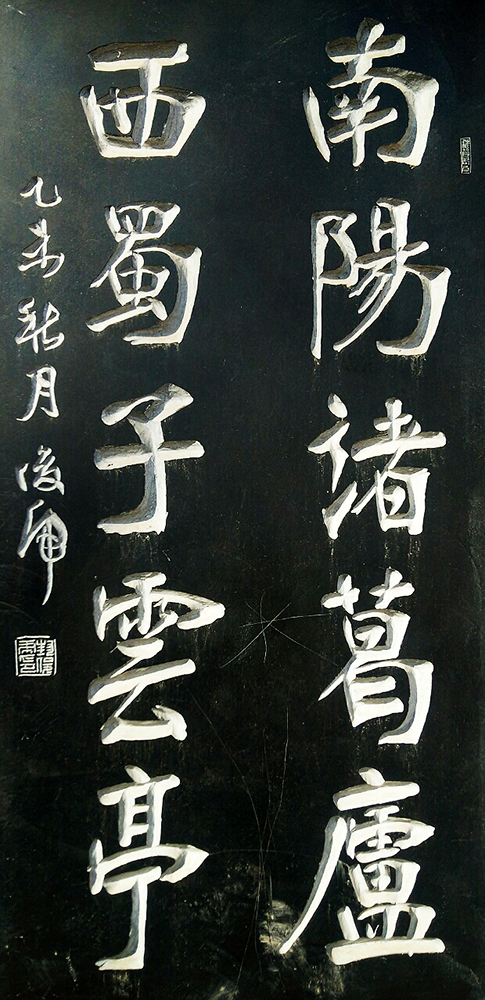 南陽諸葛廬
西蜀子雲亭
乙未秋月